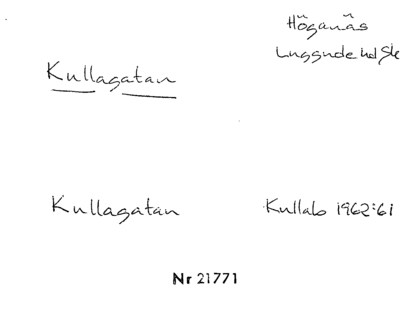 Höganäs
Luggude hd Sk
Kullagatan
Kullagatan
Kullab 1962:61
Nr 21771